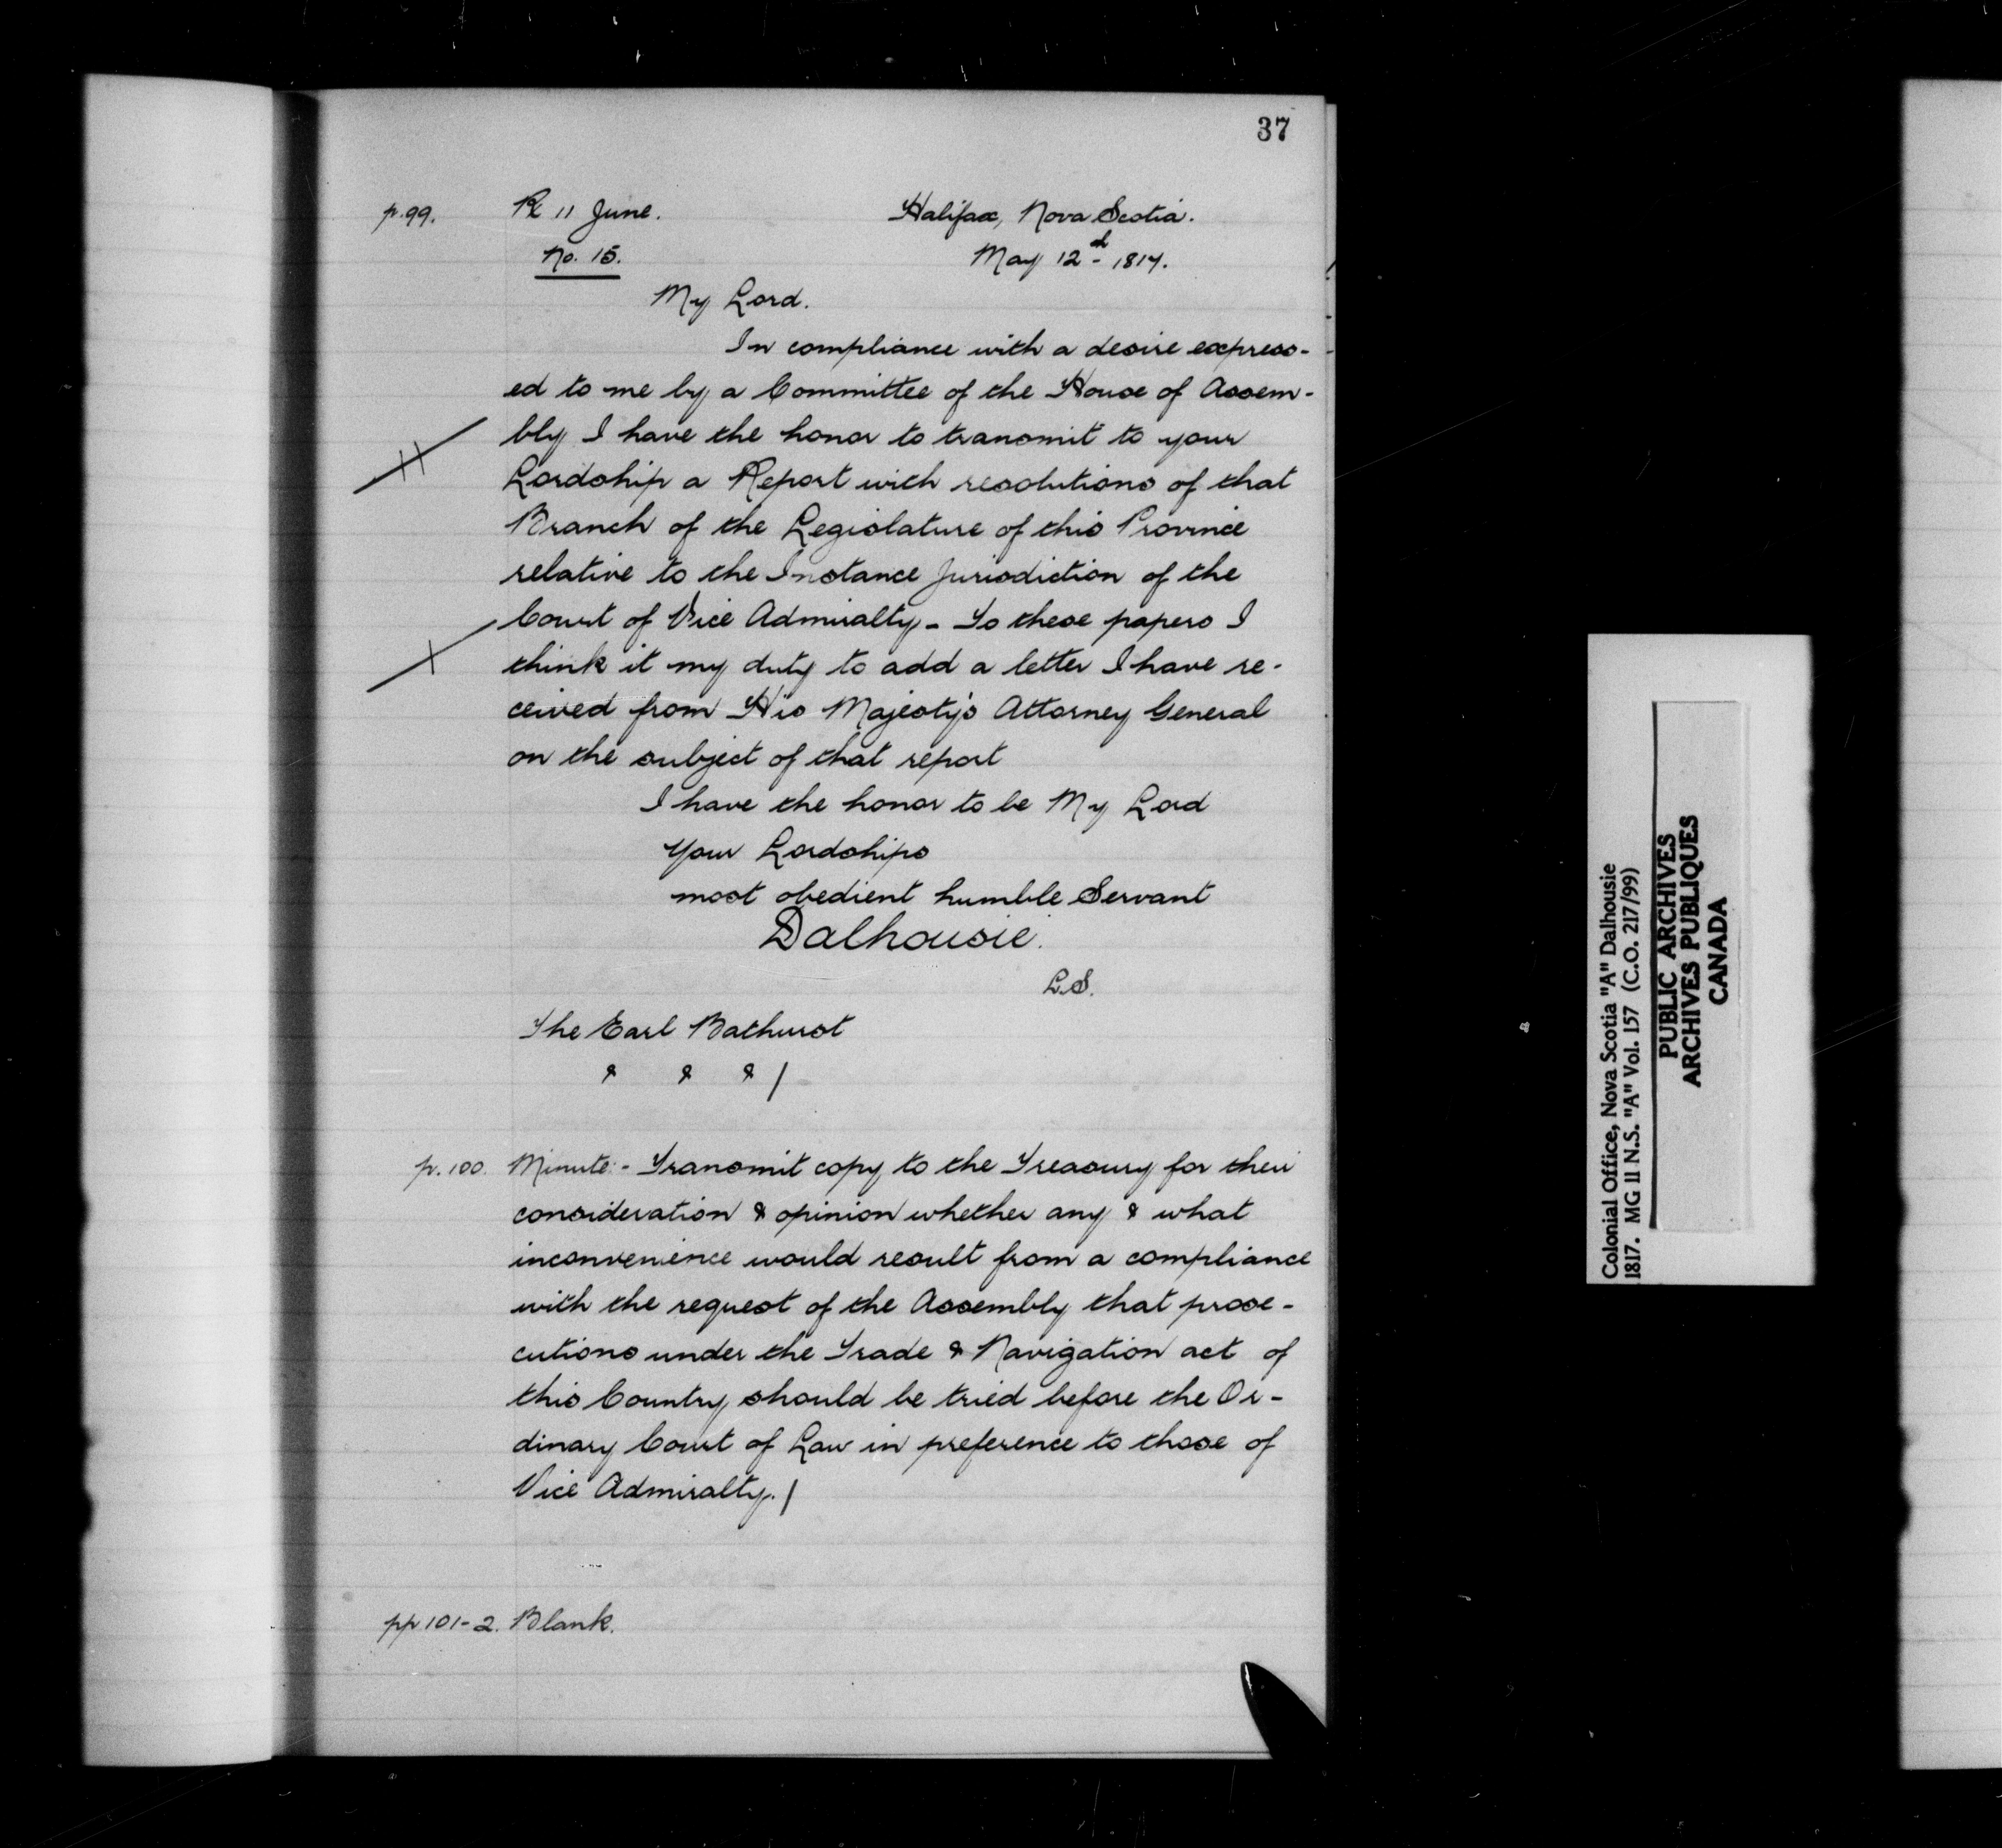 37
p. 99. Rx 11 June. Halifax, Nova Scotia.
No. 15. May 12d - 1817.
My Lord.
In compliance with a desire express-
ed to me by a Committee of the House of Assem-
bly I have the honor to transmit to your
Lordship a Report with resolutions of that
Branch of the Legislature of this Province
relative to the Instance Jurisdiction of the
Court of Vice Admiralty - To these papers I
think it my duty to add a letter I have re-
ceived from His Majesty's Attorney General
on the subject of that report
I have the honor to be My Lord
Your Lordships
most obedient humble Servant
Dalhousie.
L.S.
The Earl Bathurst
& & & /
p. 100. Minute: - Transmit copy to the Treasury for their
consideration & opinion whether any & what
inconvenience would result from a compliance
with the request of the Assembly that prose-
cutions under the Trade & Navigation act of
this Country should be tried before the Or-
dinary Court of Law in preference to those of
Vice Admiralty. /
pp 101-2. Blank.
Colonial Office, Nova Scotia "A" Dalhousie
1817. MG 11 N.S. "A" Vol. 157 (C.O. 217/99)
PUBLIC ARCHIVES
ARCHIVES PUBLIQUES
CANADA